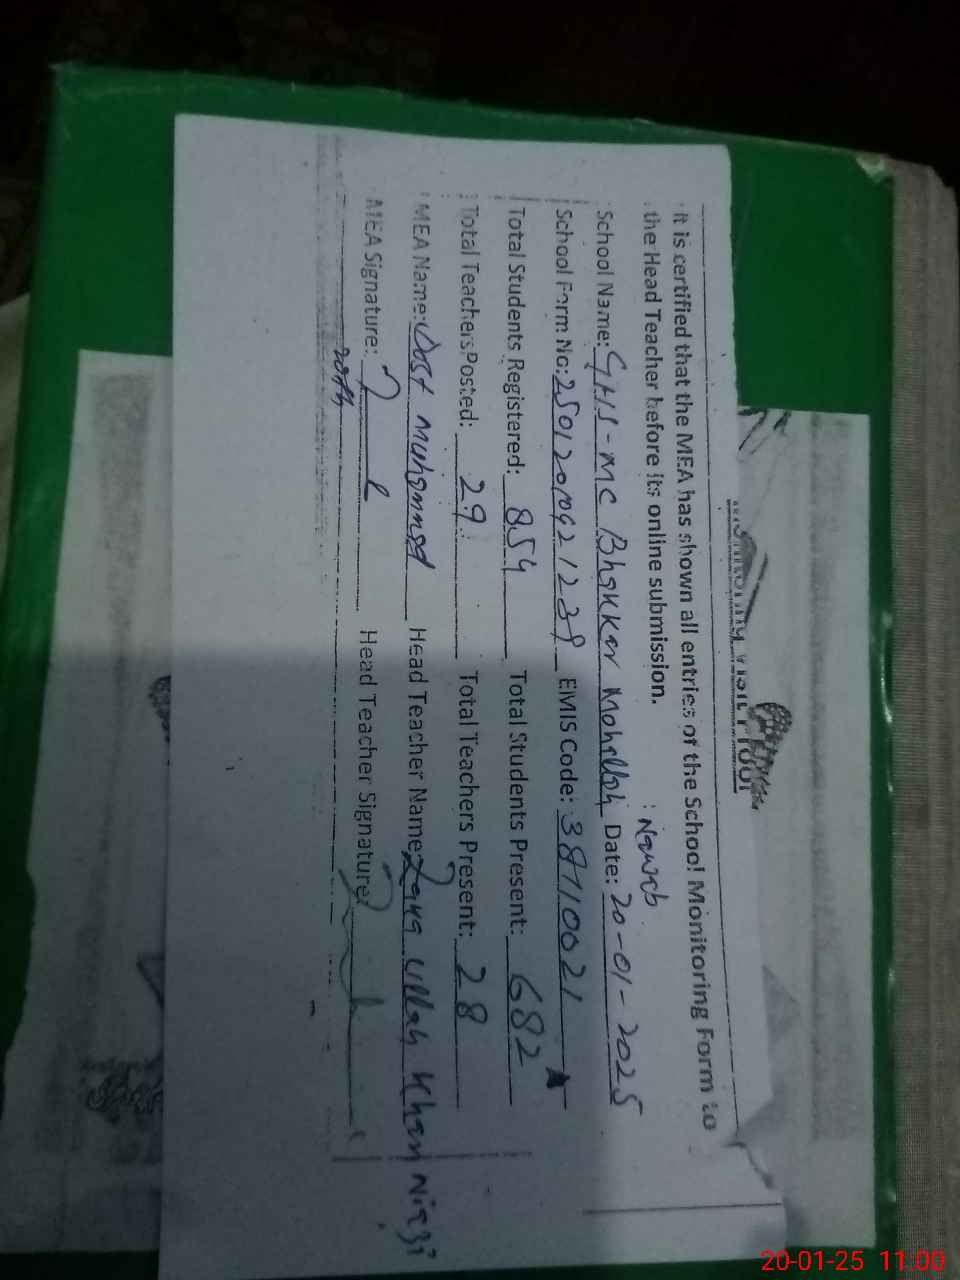 MONITORING VISIT TOOL
It is certified that the MEA has shown all entries of the School Monitoring Form to
the Head Teacher before its online submission.
Nawab
School Name: GHS-MC Bhakkar Mohallah Date: 20-01-2025
School Form No: 25012010921239 EMIS Code: 38710021
Total Students Registered: 854 Total Students Present: 682
Total Teachers Posted: 29 Total Teachers Present: 28
MEA Name: Dost Muhammad Head Teacher Name Zana Ullah Khan Niazi
MEA Signature: Head Teacher Signature
20-01-25 11:00